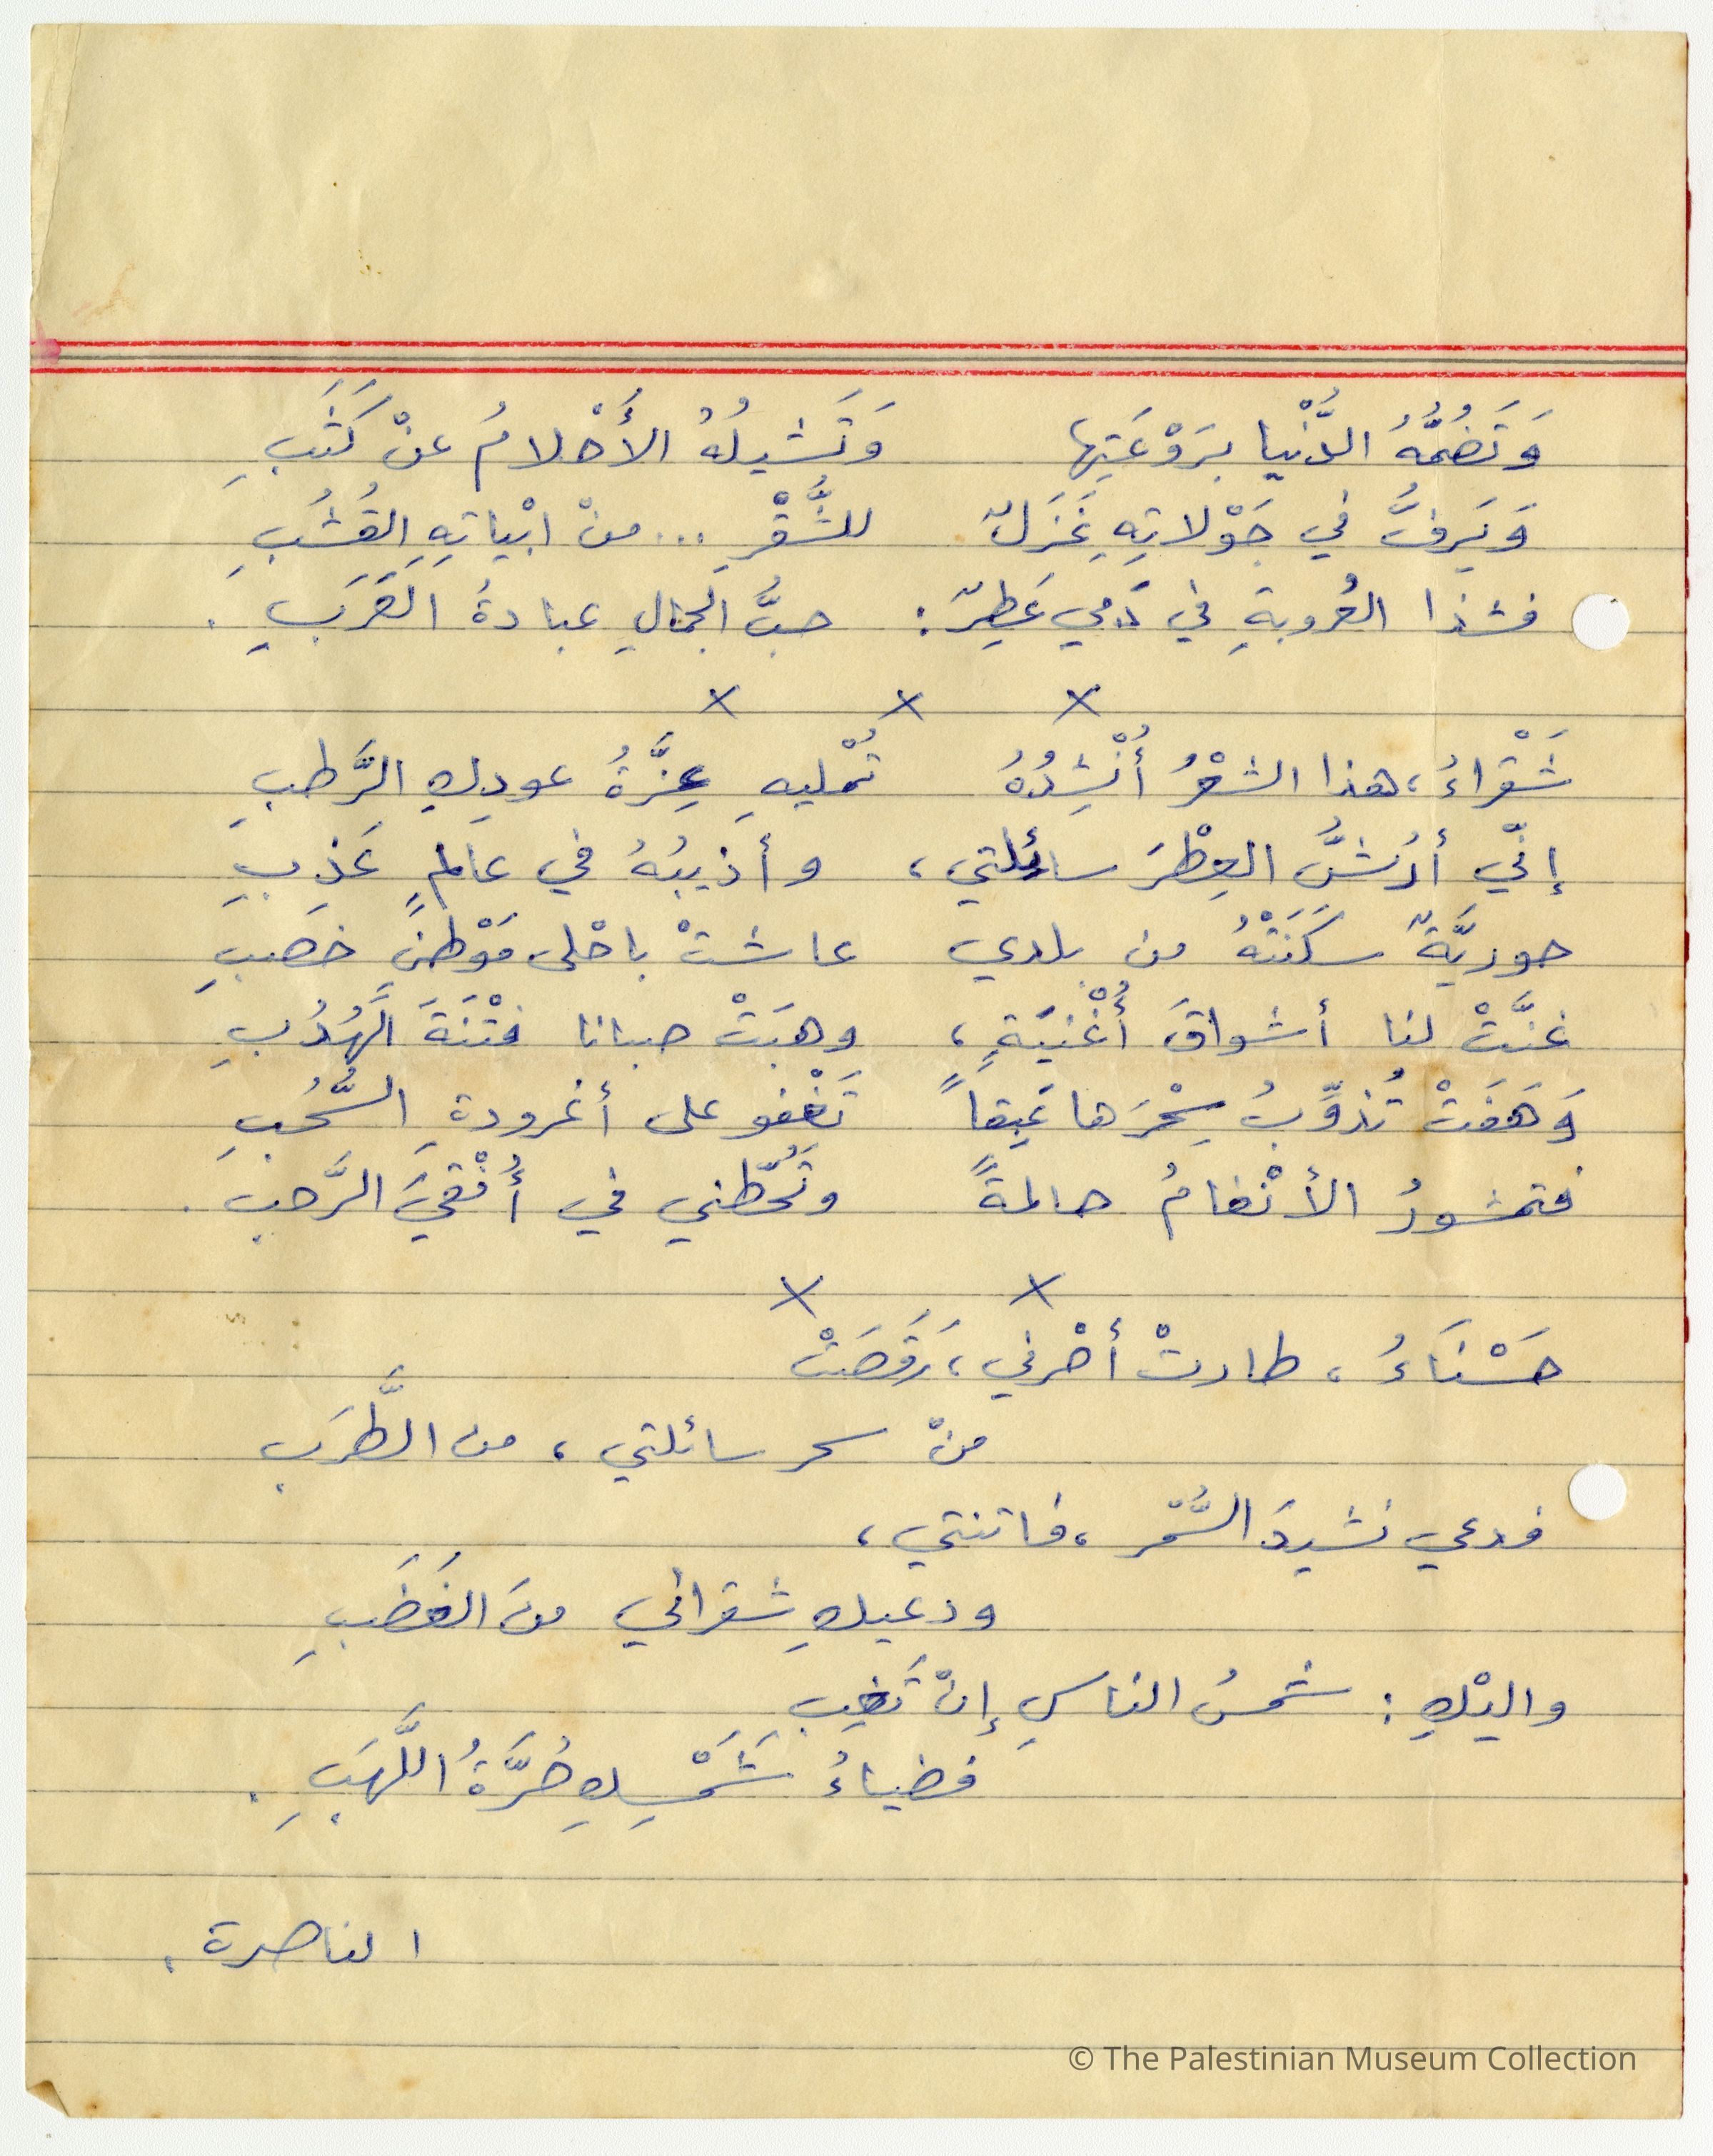 وَتَضُمُّهُ الدُّنْيا بِرَوْعَتِها وَتَشيلُهُ الأَحْلامُ عنْ كَثَبِ
وَيَرِفُّ في جَوْلاتِهِ غَزَلٌ للشُّقْرِ ... منْ ابْياتِهِ القُشُبِ
فشذا العُروبةِ في دَمي عَطِرٌ : حبُّ الجمالِ عبادةُ العَرَبِ .
× × ×
شَقْراءُ، هذا الشعْرُ أُنْشِدُهُ تُمْليهِ عِزَّةُ عودِكِ الرَّطبِ
إنّي أرُشُّ العِطْرَ سائلتي ، وأذيبُهُ في عالمٍ عَذِبِ
حوريَّةٌ سَكَنَتْهُ من بلدي عاشتْ باحْلى مَوْطنٍ خصَبِ
غنَّتْ لنا أشواقَ أُغْنيَةٍ ، وهبَتْ صبانا فتْنَةَ الهُدُبِ
وَهَفَتْ تُذوِّبُ سِحْرَها عَبِقاً تَغْفو على أغرودةِ السُّحُبِ
فتمشورُ الأنْغامُ حالمةً وتَحُطّني في أُفْقيَ الرَّحبِ .
× ×
حَسْنَاءُ ، طارتْ أحْرفي ، رَقَصَتْ
منْ سحر سائلتي ، من الطَّرَبِ
فدعي نشيدَ السُّمْر ، فاتنتي ،
ودعيكِ شقرائي منَ الغَضَبِ
واليْكِ : شمسُ الناسِ إنْ تَغِبِ
فضياءُ شَمْسِكِ حُرَّةُ اللَّهَبِ .
الناصرة .
© The Palestinian Museum Collection